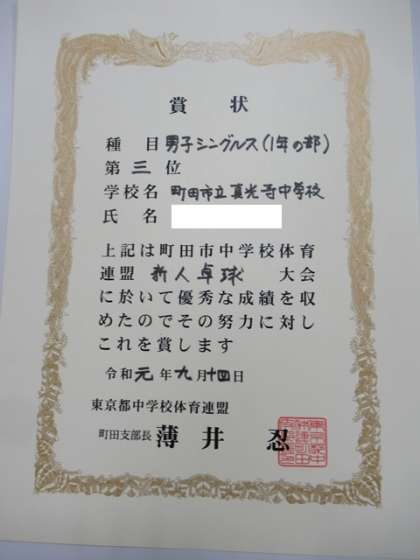 賞状
種目 男子シングルス(1年の部)
第三位
学校名 町田市立真光寺中学校
氏名
上記は町田市中学校体育
連盟 新人卓球 大会
に於いて優秀な成績を収
めたのでその努力に対し
これを賞します
令和元年九月十四日
東京都中学校体育連盟
町田支部長 薄井 忍